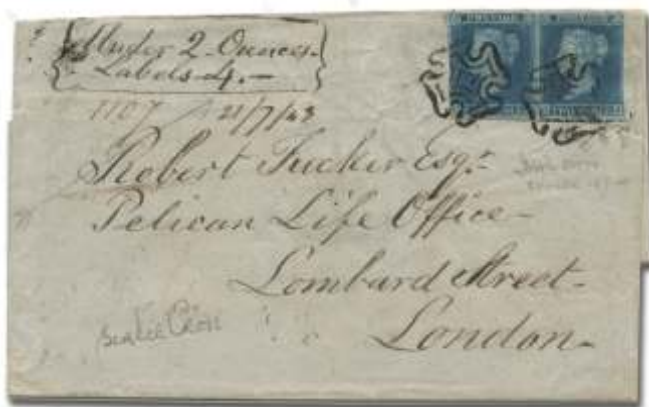 Under 2 Ounces.
Labels 4.—
1107 21/7/43
Robert Tucker Esqr.
Pelican Life Office—
Lombard Street.
London.